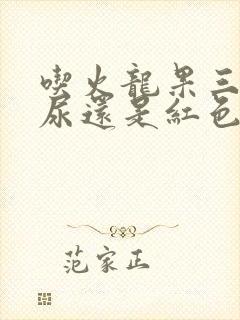 喫火龍果三
尿還是紅色
范家正